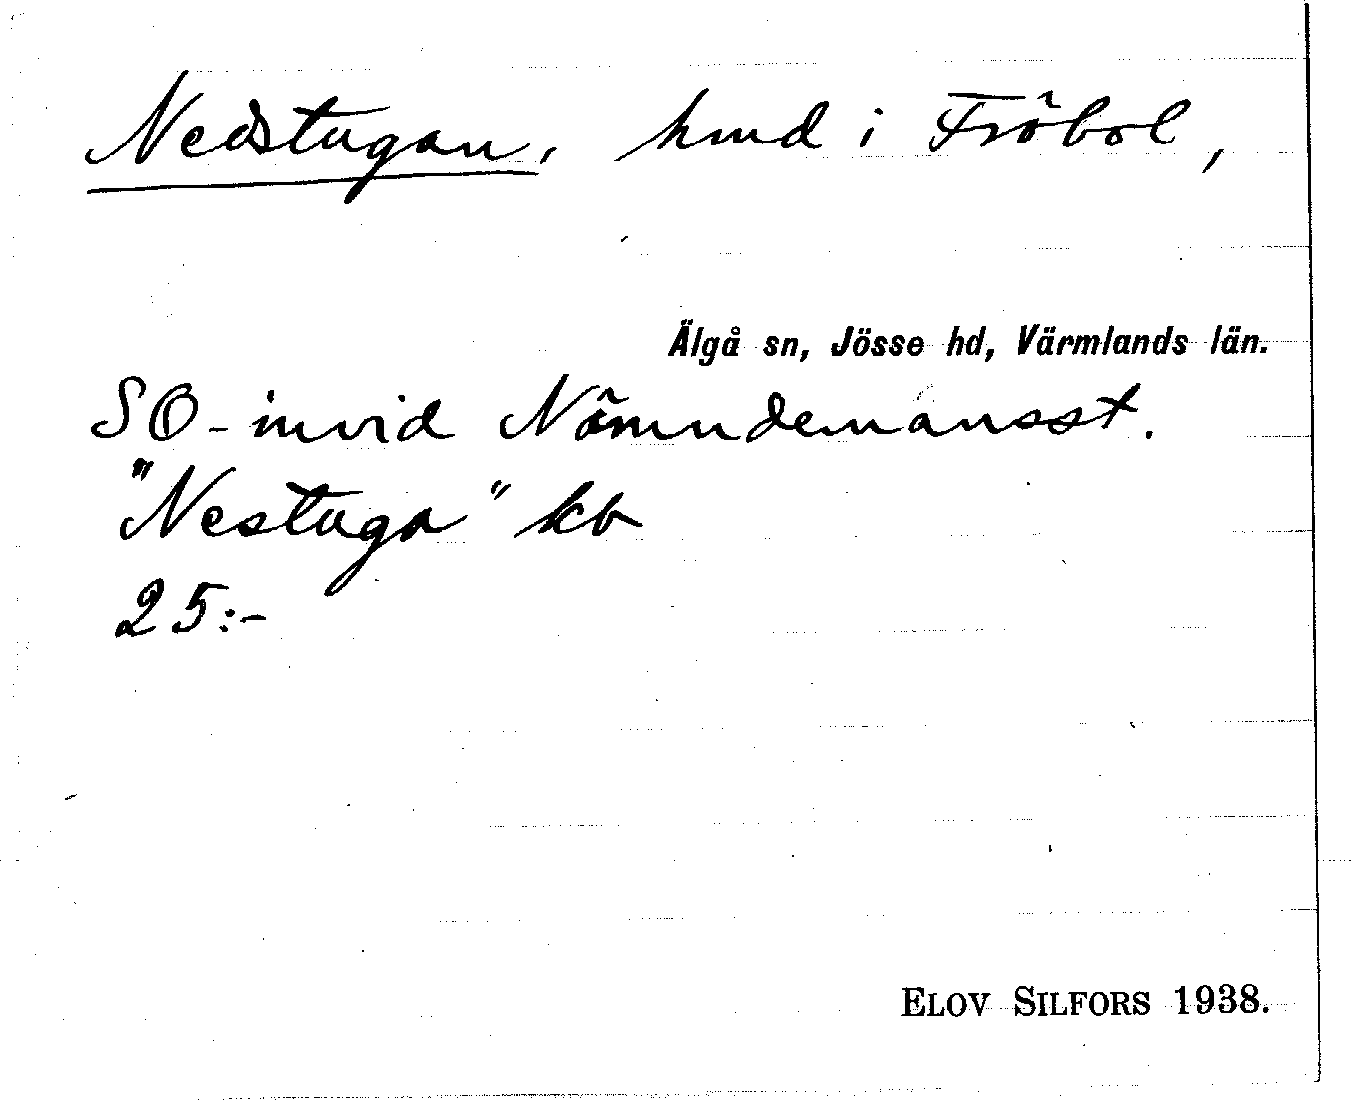 Nedstugan, hmd i Fröbol,
Älgå sn, Jösse hd, Värmlands län.
SO- invid Nämndemansst.
"Nestuga" kb
25:-
ELOV SILFORS 1938.